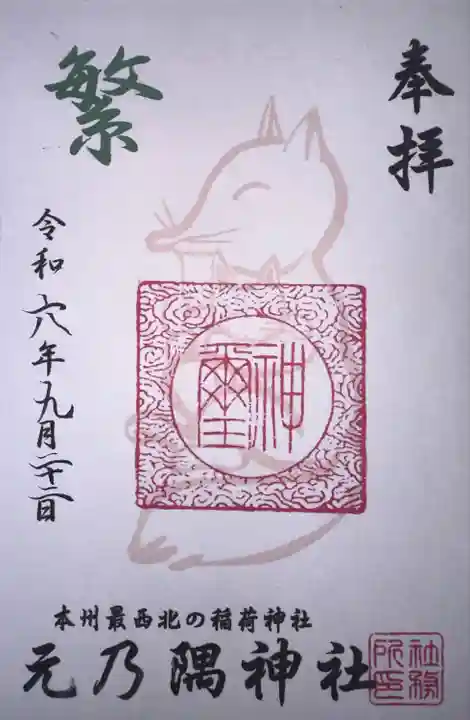 奉拝
繁
令和六年九月二十二日
神璽
本州最西北の稲荷神社
元乃隅神社
社務所印